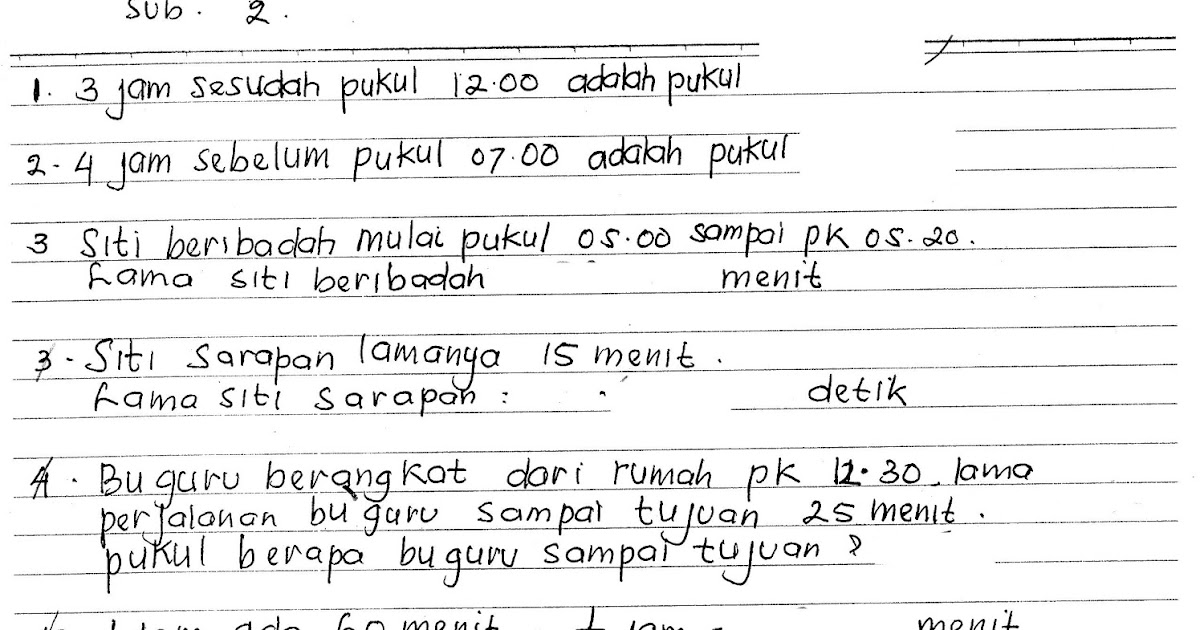 sub. 2.
1. 3 jam sesudah pukul 12.00 adalah pukul
2. 4 jam sebelum pukul 07.00 adalah pukul
3 Siti beribadah mulai pukul 05.00 sampai pk 05.20.
Lama siti beribadah menit
3. Siti sarapan lamanya 15 menit.
Lama siti sarapan : detik
4. Bu guru berangkat dari rumah pk 12.30. lama
perjalanan bu guru sampai tujuan 25 menit.
pukul berapa bu guru sampai tujuan ?
60 menit jam = menit